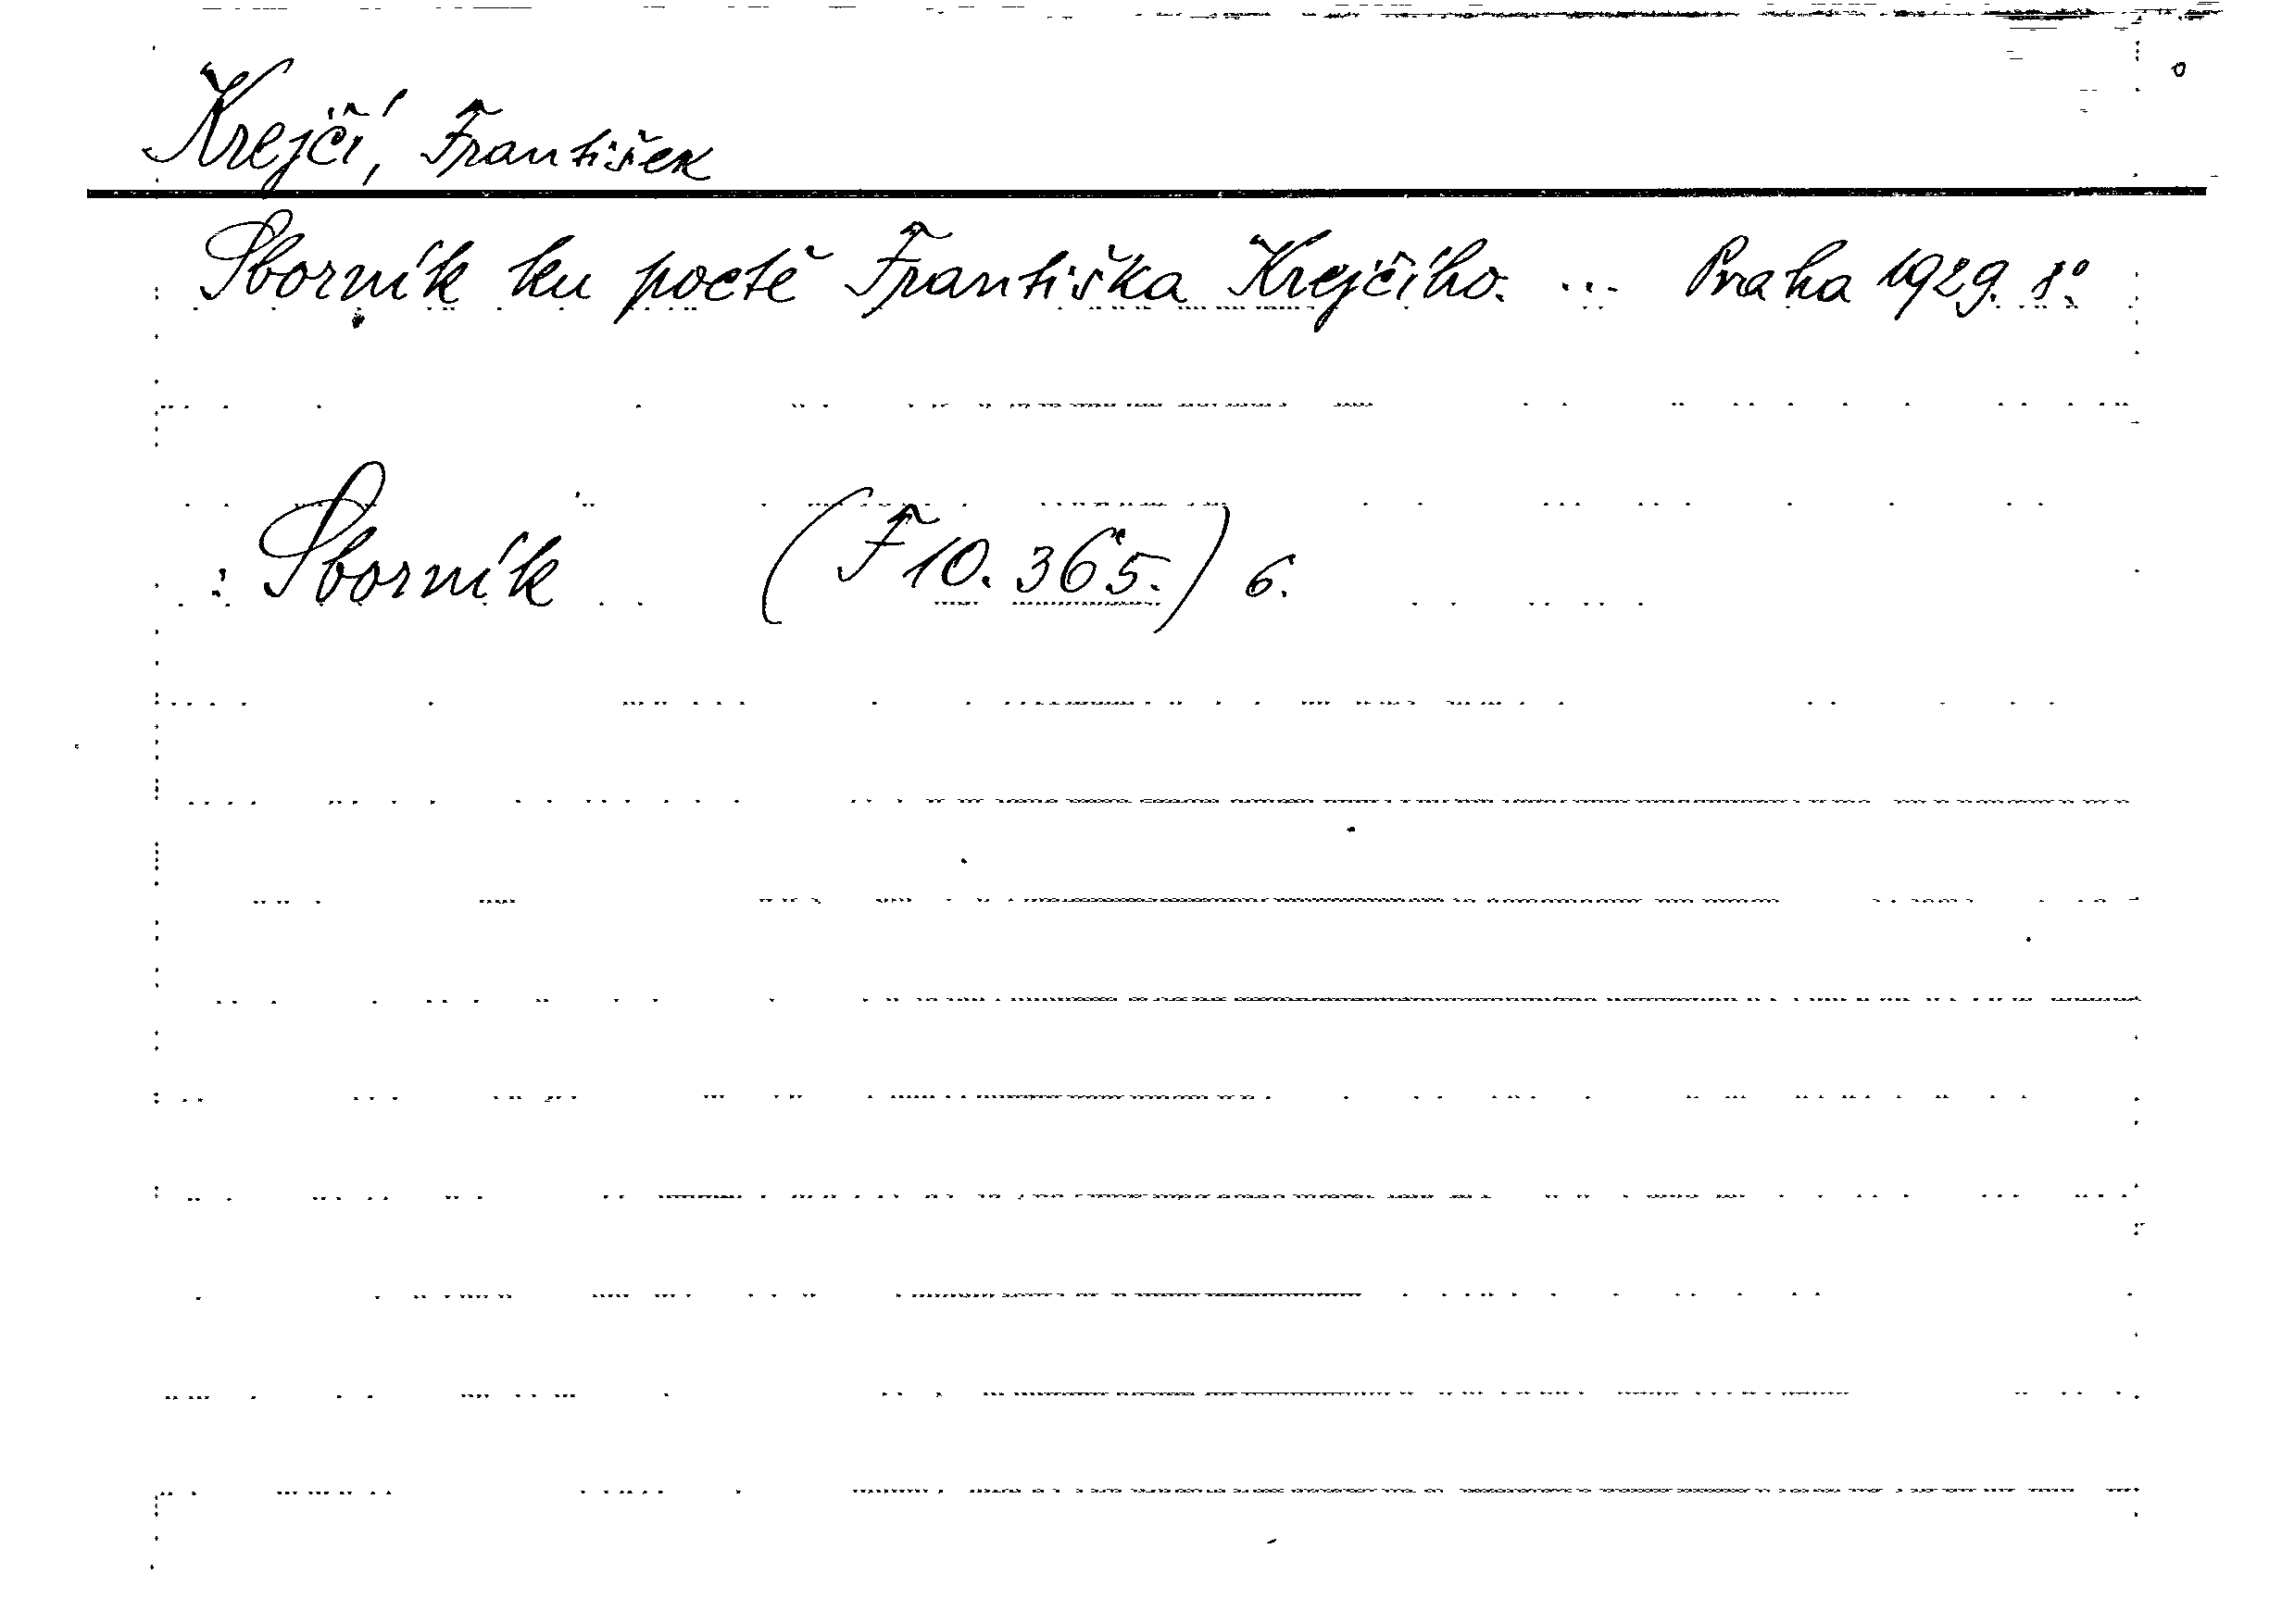 Krejčí, František
Sborník ku poctě Františka Krejčího. ... Praha 1929. 8°.
: Sborník (F 10.365.) 6.